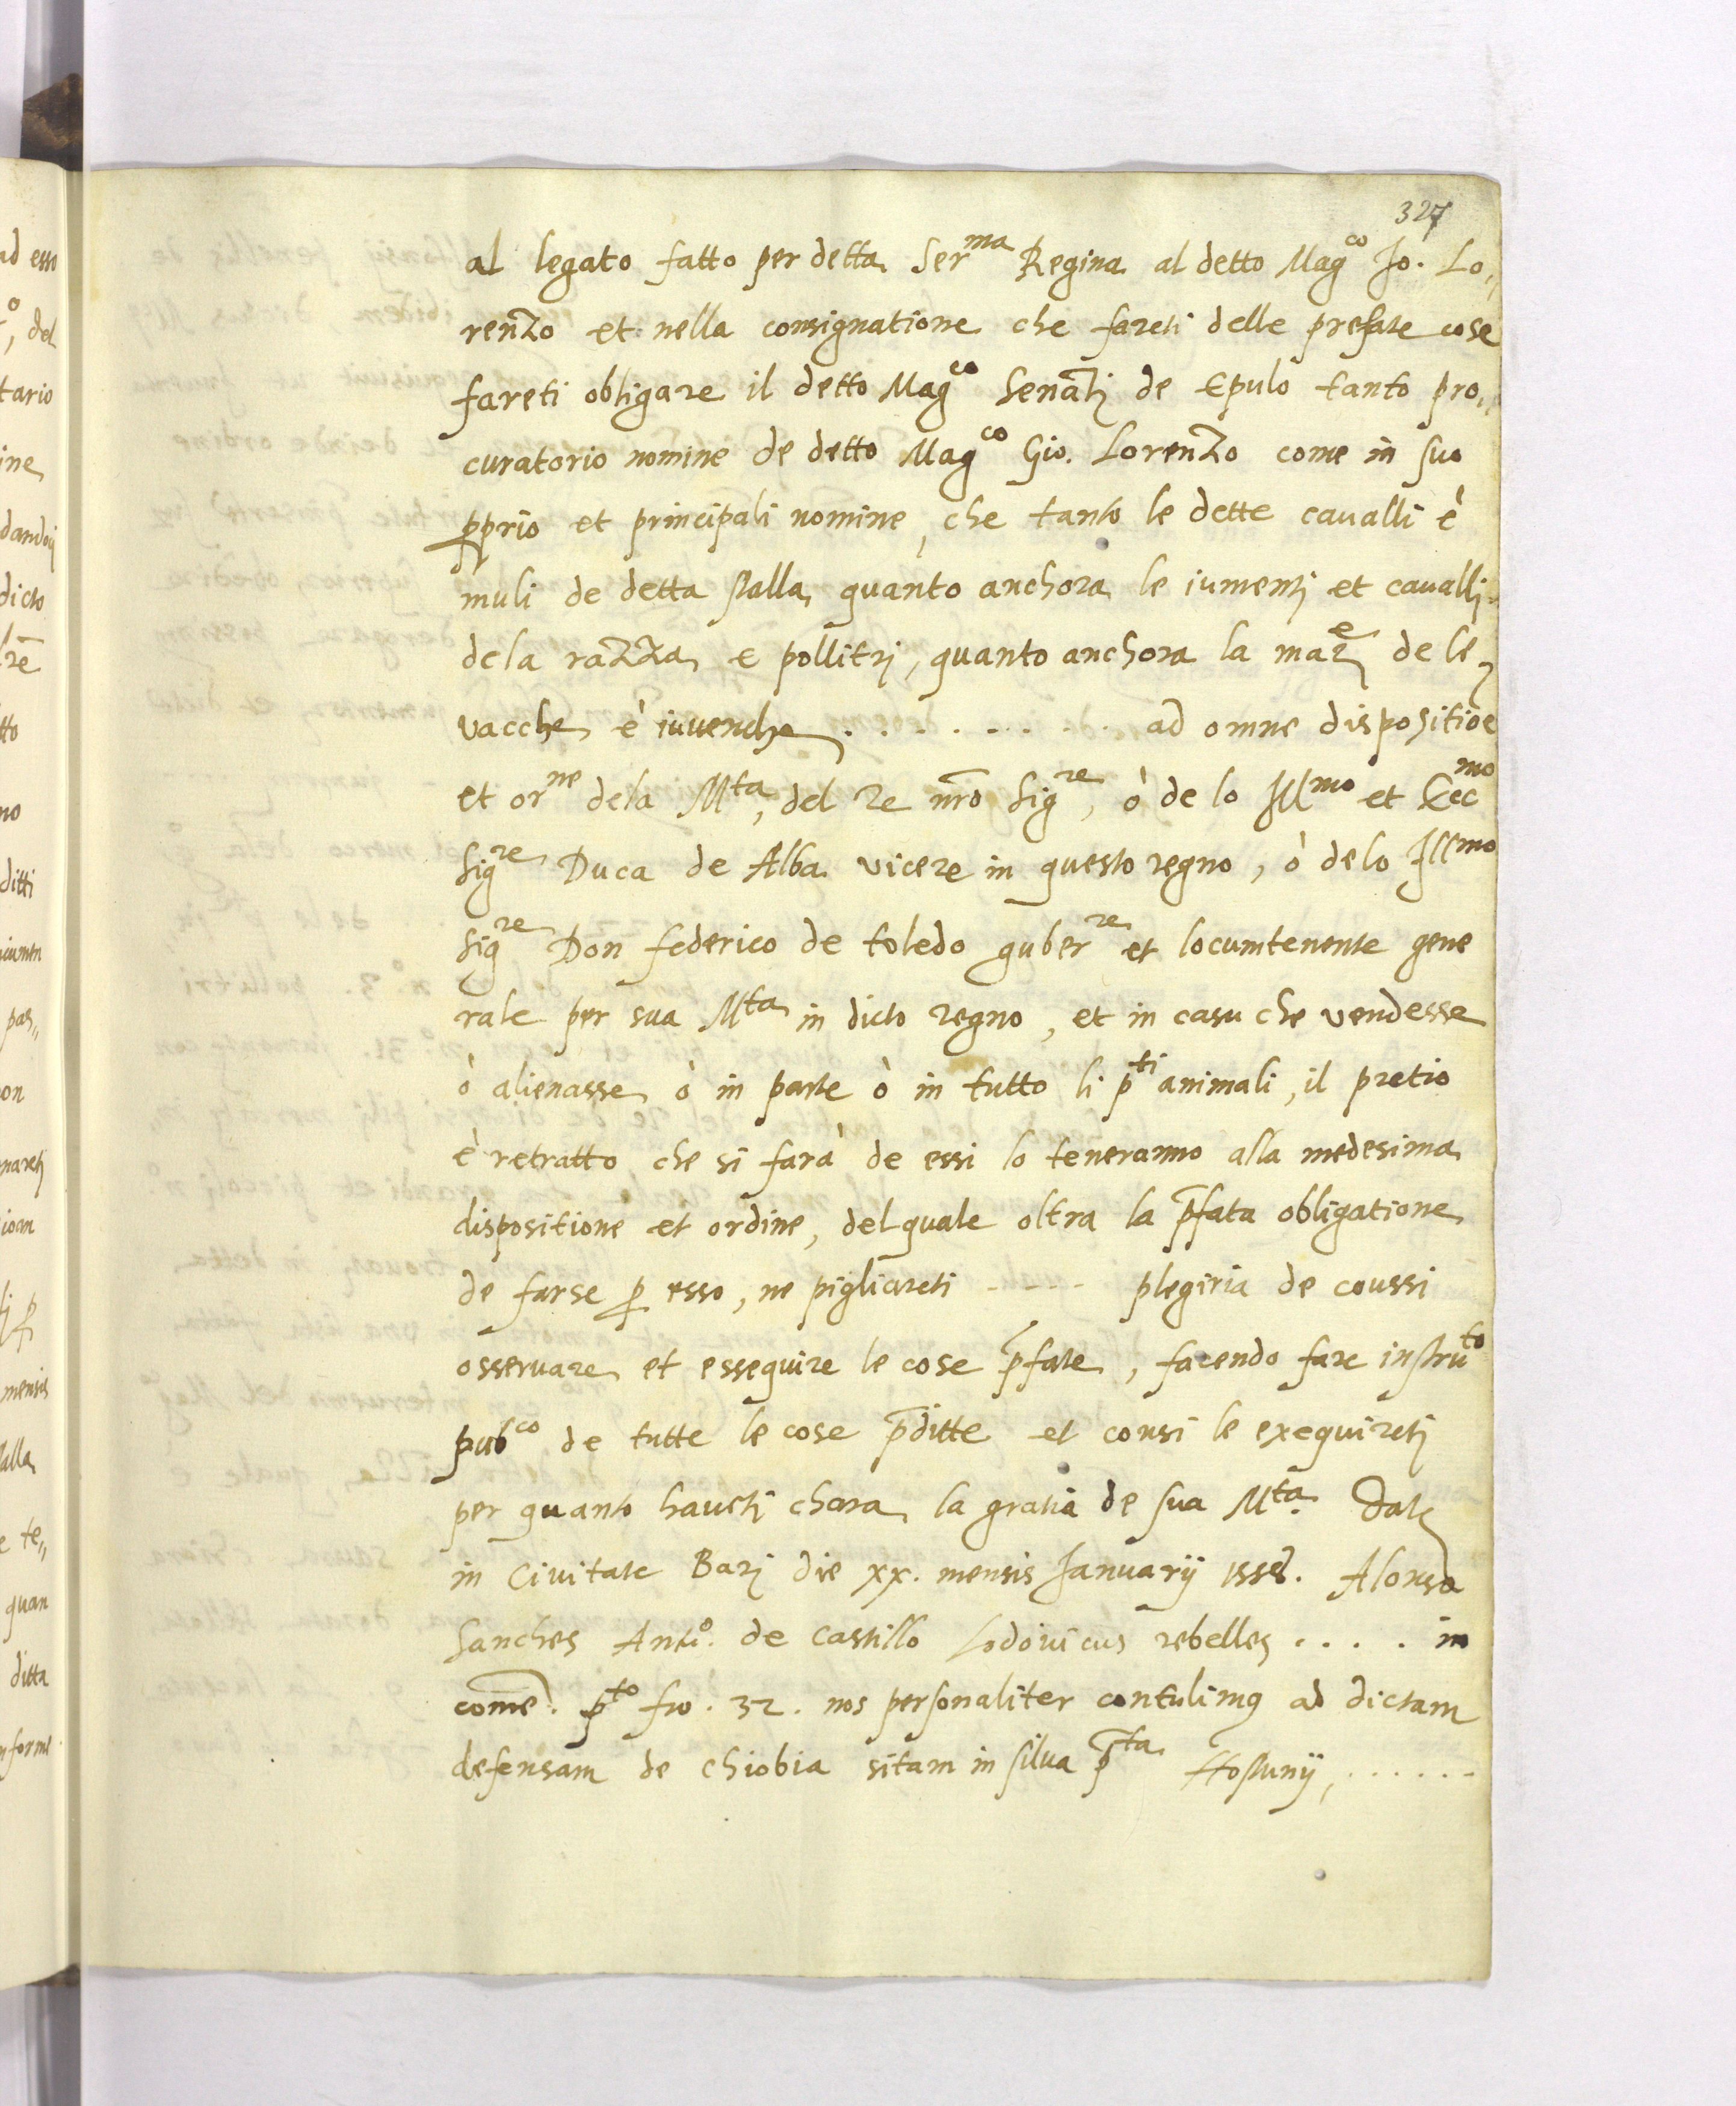 327
al legato fatto per detta Ser^ma Regina al detto Mag^co Jo. Lo„
renzo et nella consignatione che fareti delle prefate cose
fareti obligare il detto Mag^co Senatj de Epulo tanto pro„
curatorio nomine de detto Mag^co Gio. Lorenzo come in suo
p̱prio et principali nomine, che tanto le dette cavalli è
muli de detta stalla quanto anchora le iumentj et cavallj
dela razza e pollitrj, quanto anchora la maz^e de le
vacche è iuvenche . . . . . . . . ad omne dispositiōe
et or^ne dela M^ta, del Re nr̄o Sig^re, ò de lo Ill^mo et Ecc^mo
Sig^re Duca de Alba vicere in questo regno, ò delo Ill^mo
Sig^re Don federico de toledo guber^re et locumtenente gene
rale per sua M^ta in dicto regno, et in casu che vendesse
ò alienasse ò in parte ò in tutto li p^ti animali, il pretio
è retratto che si farà de essi lo teneranno alla medesima
dispositione et ordine, del quale oltra la p̄fata obligatione
de farse p̱ esso, ne pigliareti - - - - plegiria de coussi
osservare et essequire le cose p̄fate, facendo fare instru^to
pub^co de tutte le cose p̄ditte et cousi le exequiretj
per quanto havetj chara la gratia de sua M^ta. Dat
in Civitate Barj die xx. mensis Januarij 1558. Alonso
Sanches Ant.° de Castillo Lodovicus rebelles . . . . in
comē. p^to fro. 32. nos personaliter contulimꝰ ad dictam
defensam de chiobia sitam in silva p̄^ta Hostunij, . . . . . .
ad esso
del
tario
ine
dicto
ditti
pas„
on
mensis
te„
quan
ditta